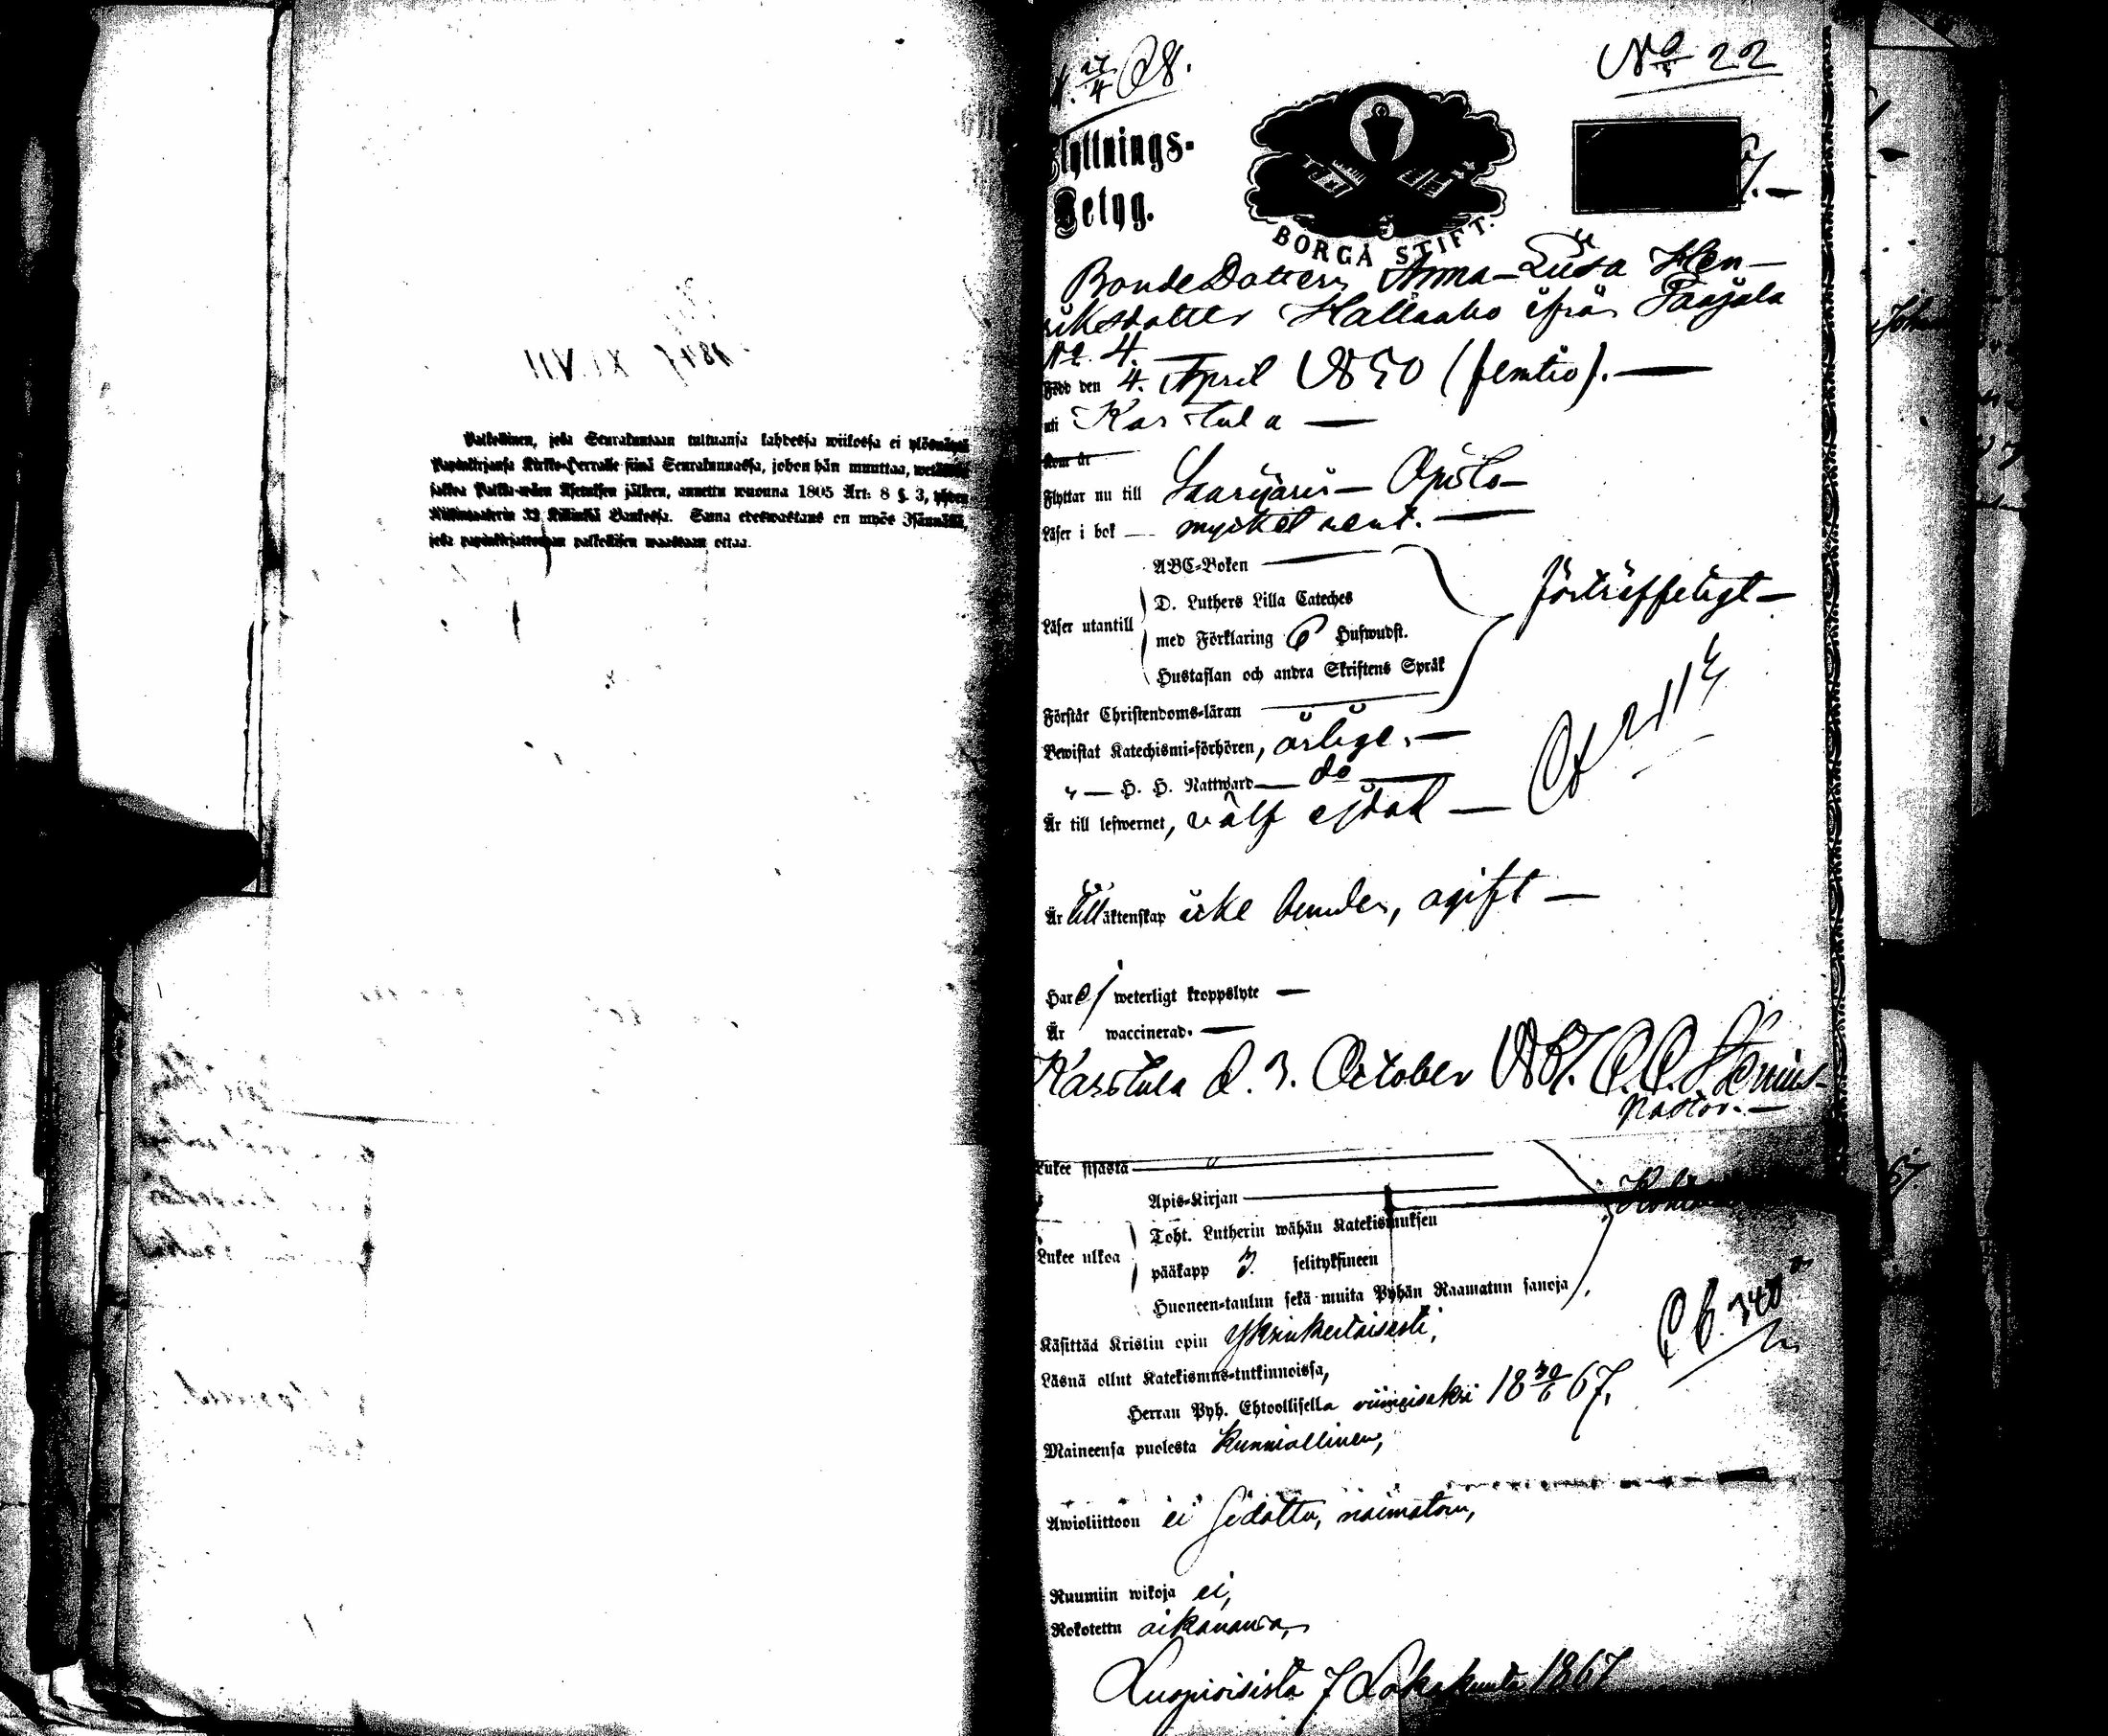 Palkollinen, joka Seurakuntaan tultuansa kahdessa wiikossa ei ylösnäytä
Papinkirjansa Kirkko-Herralle siinä Seurakunnassa, johon hän muuttaa, wetäköön
jälken Palkka-wäen Asetuksen jälkeen, annettu wuonna 1805 Art: 8 §. 3, yhden
Riikintaalerin 32 Killinkiä Bankossa. Sama edeswastaus on myös Isännällä,
joka papinkirjattoman palkollisen wastaan ottaa.
No 22
Flyttnings-
Betyg.
BORGÅ STIFT.
BondeDottern Anna-Liisa Hen-
riksdotter Hallaaho ifrån Paajala
No 4.
Född den 4. April 1850 (femtio).
uti Karstula
Kom år
Flyttar nu till Saarijärvi-
Läser i bok mycket rent.
ABC-Boken
D. Luthers Lilla Cateches
Läser utantill
med Förklaring 6 Hufwudst.
förträffeligt
Hustaflan och andra Skriftens Språk
Förstår Christendoms-läran
Bewistat Katechismi-förhören, årlige.
" H. H. Nattward do
Är till lefwernet, välfrejdad
Är till äktenskap icke bunden, ogift
Har ej weterligt kroppslyte
Är waccinerad.
Karstula d. 3. October 1867.
Pastor.
Lukee sisästä
Apis-Kirjan
Toht. Lutherin wähän Katekismuksen
Lukee ulkoa
pääkapp 3. selityksineen
Huoneen-taulun sekä muita Pyhän Raamatun sanoja
Käsittää Kristin opin yksinkertaisesti,
Läsnä ollut Katekismus-tutkinnoissa,
Herran Pyh. Ehtoollisella viimeiseksi 18 30/6 67.
Maineensa puolesta kunniallinen,
Awioliittoon ei sidottu, naimatoin,
Ruumiin wikoja ei,
Rokotettu aikanansa,
Luopioisista 7 Lokakuuta 1867